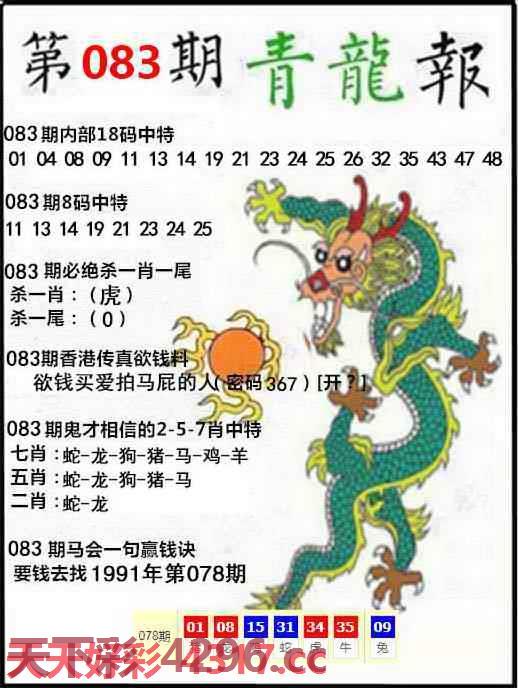 第083期 青龍報
083期内部18码中特
01 04 08 09 11 13 14 19 21 23 24 25 26 32 35 43 47 48
083期8码中特
11 13 14 19 21 23 24 25
083期必绝杀一肖一尾
杀一肖:(虎)
杀一尾:(0)
083期香港传真欲钱料
欲钱买爱拍马屁的人(密码367)[开?]
083期鬼才相信的2-5-7肖中特
七肖:蛇-龙-狗-猪-马-鸡-羊
五肖:蛇-龙-狗-猪-马
二肖:蛇-龙
083期马会一句赢钱诀
要钱去找1991年第078期
078期 01 08 15 31 34 35 09
蛇 虎 牛 兔
天天好彩
.cc